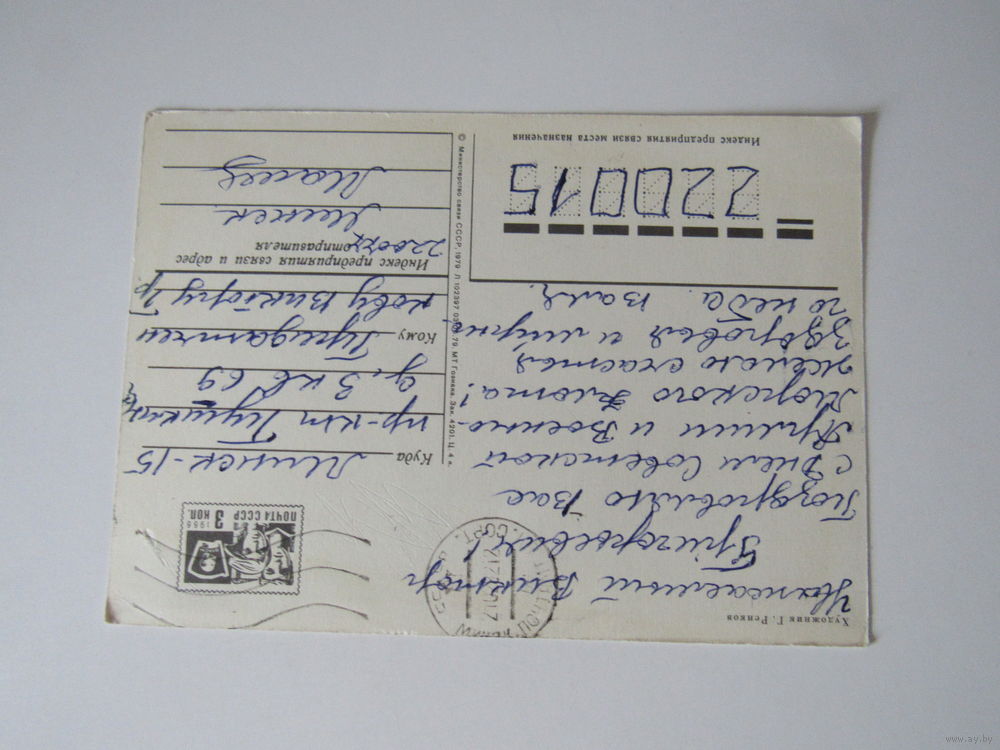 Художник Г. Ренков
Уважаемый Виктор
Григорьевич!
Поздравляю Вас
с Днем Советской
Армии и Военно-
Морского Флота!
Желаю счастья
здоровья и мирно-
го неба вам.
220015
Индекс предприятия связи места назначения
© Министерство связи СССР, 1979 Л 102397 03.05.79. МТ Гознака. Зак. 4201. Ц. 4 к.
ПОЧТА СССР
1966
3 КОП.
Куда Минск-15
пр-кт Пушкина
д. 3 кв 69
Кому
кову Виктору Гр
Индекс предприятия связи и адрес
отправителя
Минск
www.ay.by